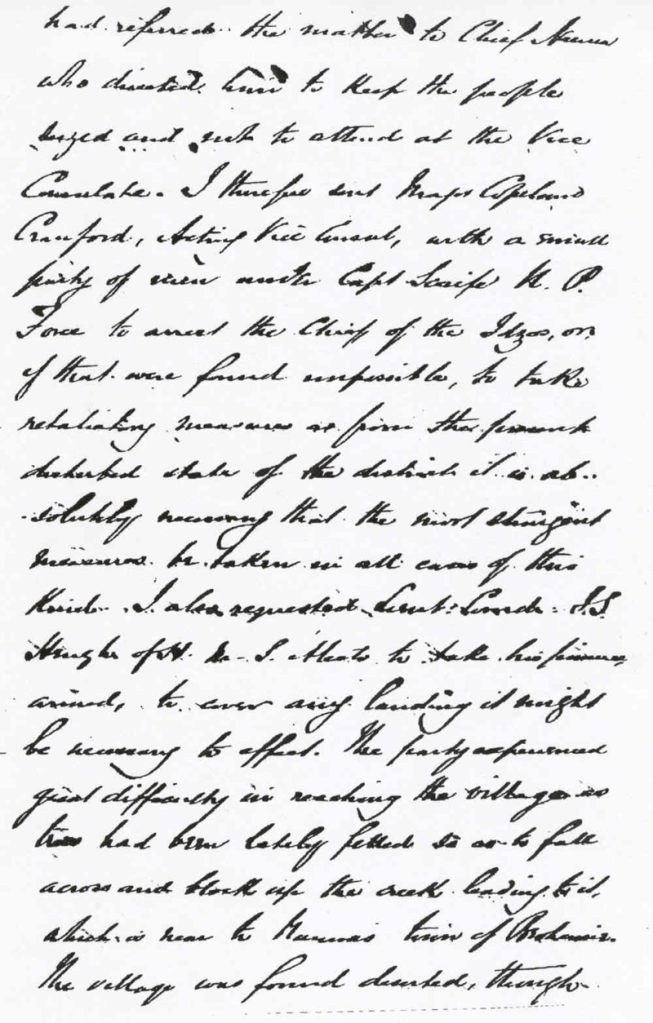 had referred the matter to Chief Nana
who directed him to keep the people
seized and not to attend at the Vice
Consulate. I therefore sent Major Copland
Crawford, Acting Vice Consul, with a small
party of men under Capt Scaife N. P.
Force to arrest the Chief of the Idzos, or,
if that were found impossible, to take
retaliating measures as from the present
disturbed state of the district it is ab-
solutely necessary that the most stringent
measures be taken in all cases of this
Kind. I also requested Lieut: Comdr. J.S.
of H. M. S. Alecto to take his pinnace,
armed, to cover any landing it might
be necessary to effect. The party experienced
great difficulty in reaching the village as
trees had been lately felled so as to fall
across and block up the creek leading to it,
which is near to Nana's town of
The village was found deserted, though